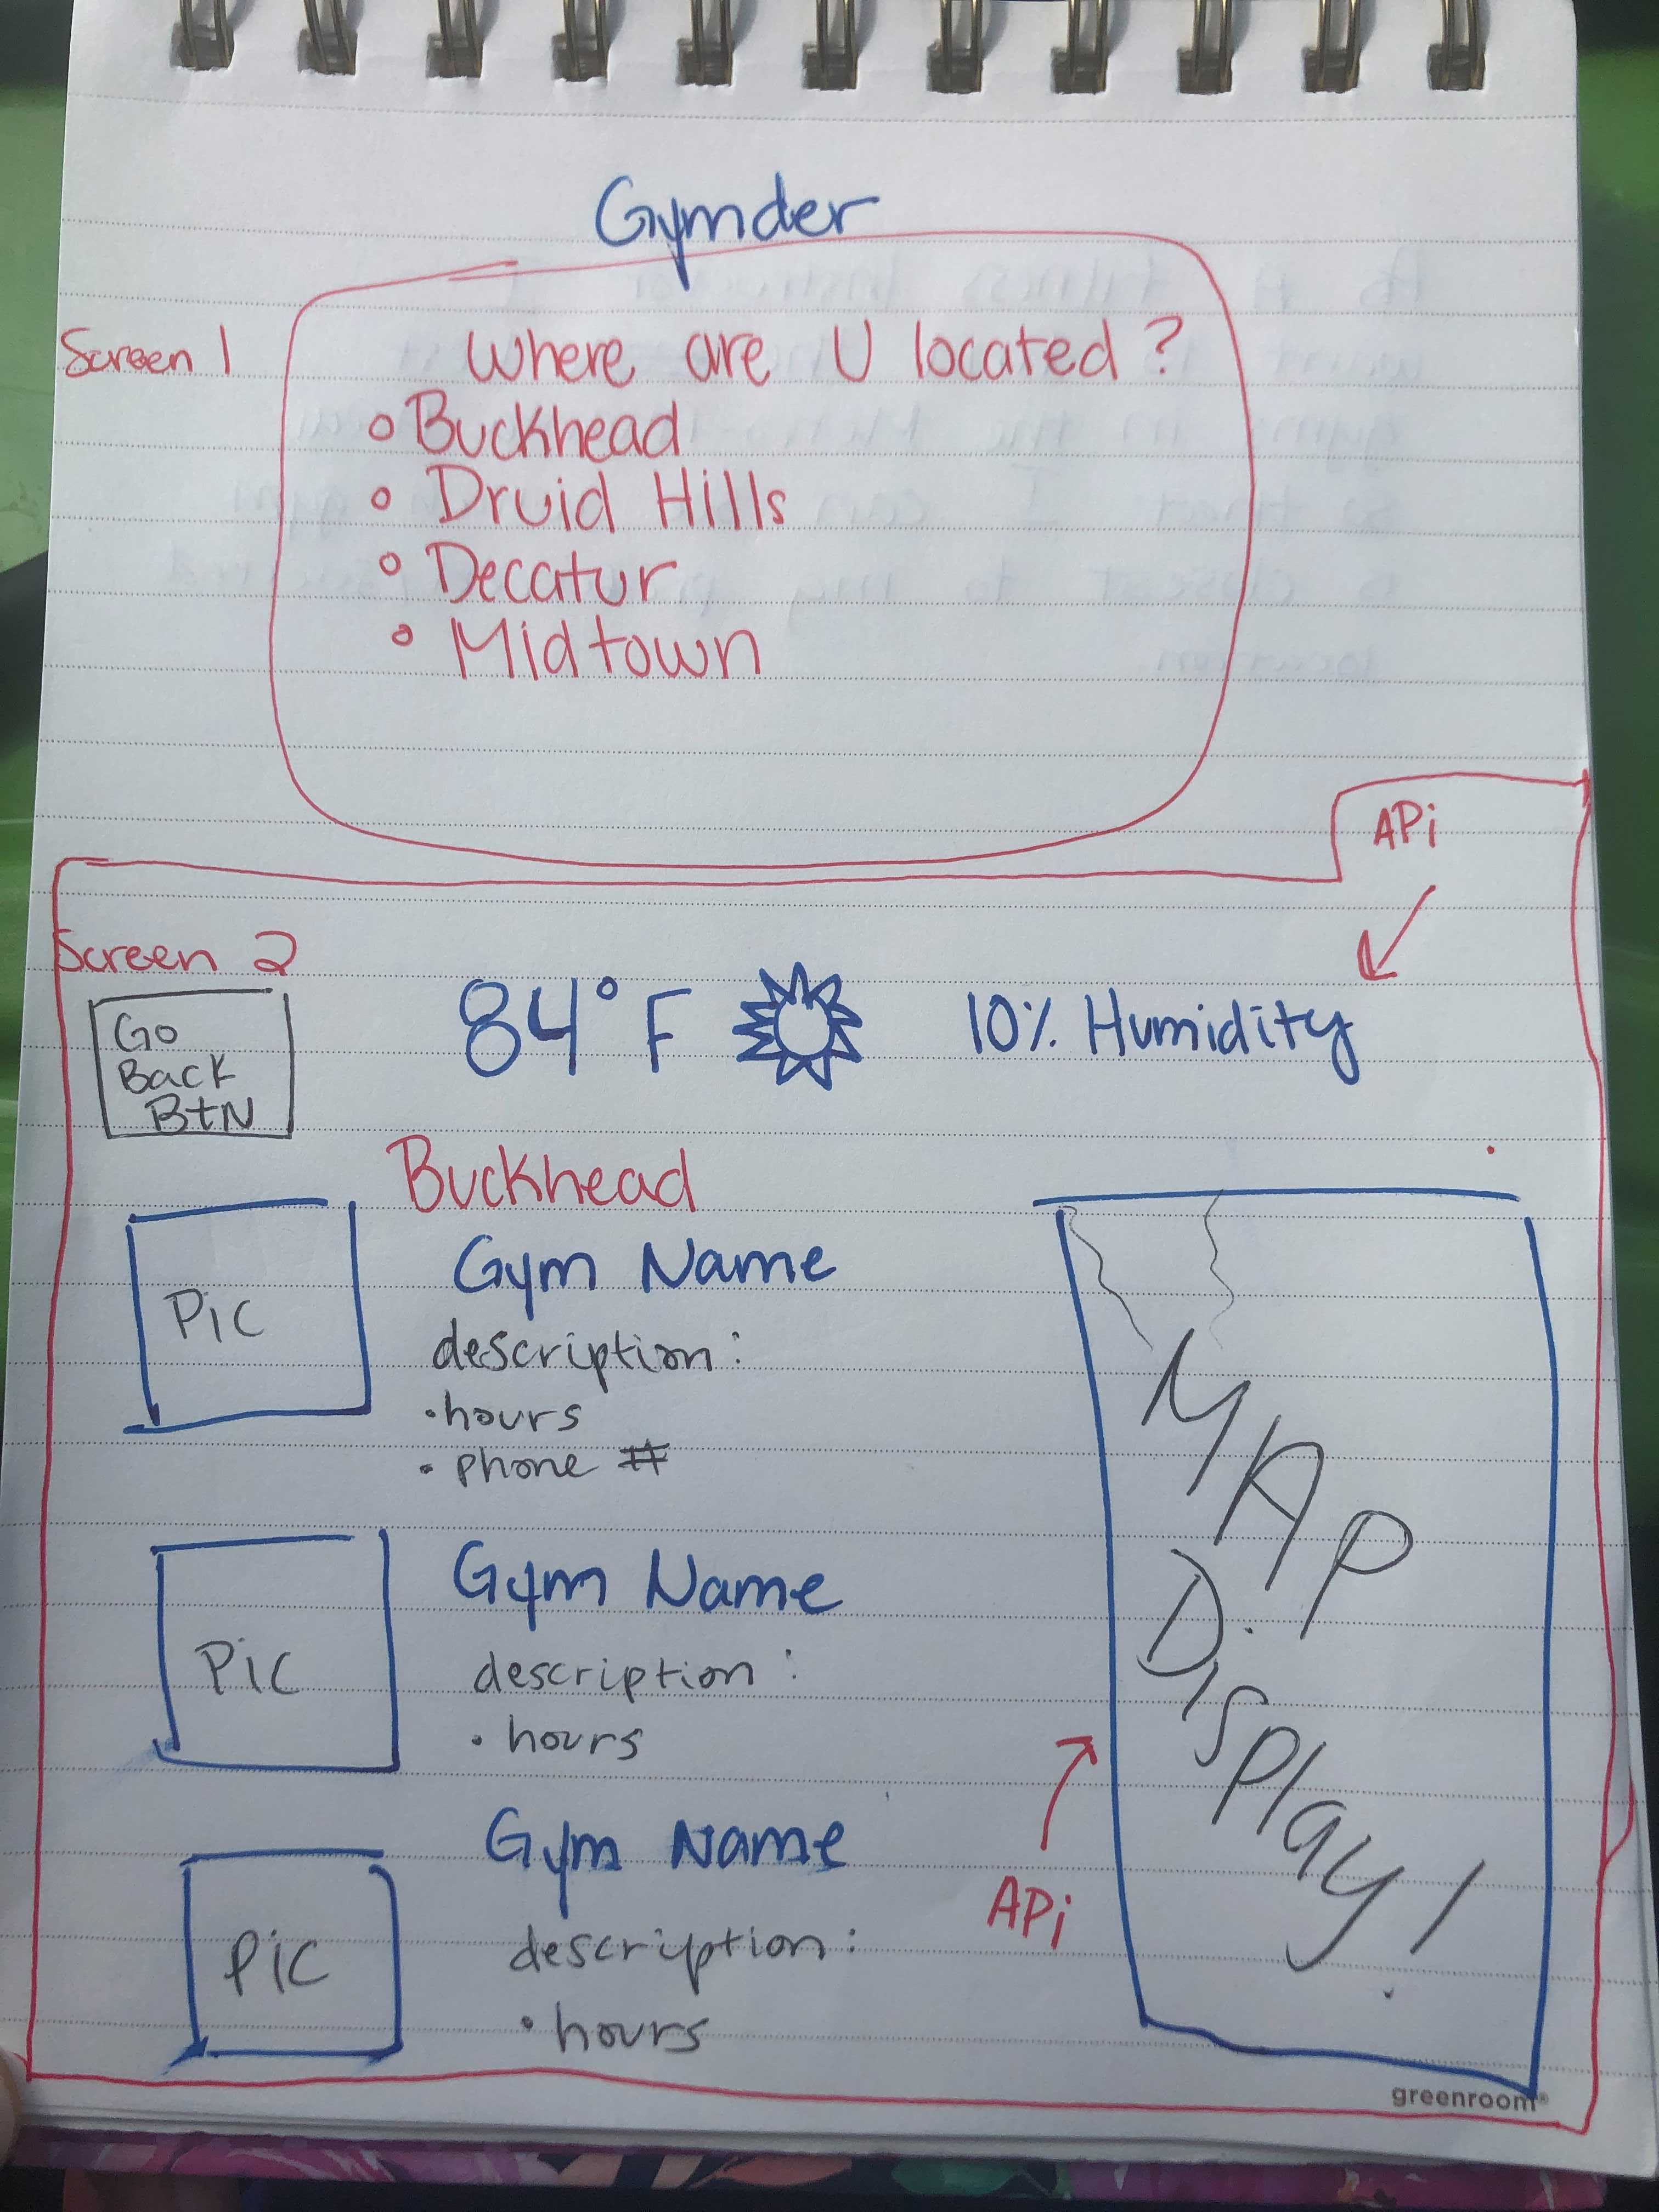 Gymder
Screen 1
Where are U located?
Buckhead
Druid Hills
Decatur
Midtown
APi
Screen 2
Go
Back
BtN
84°F
10% Humidity
Buckhead
Pic
Gym Name
description:
• hours
• phone #
Pic
Gym Name
description:
• hours
Pic
Gym Name
description:
• hours
MAP
Display!
APi
greenroom®